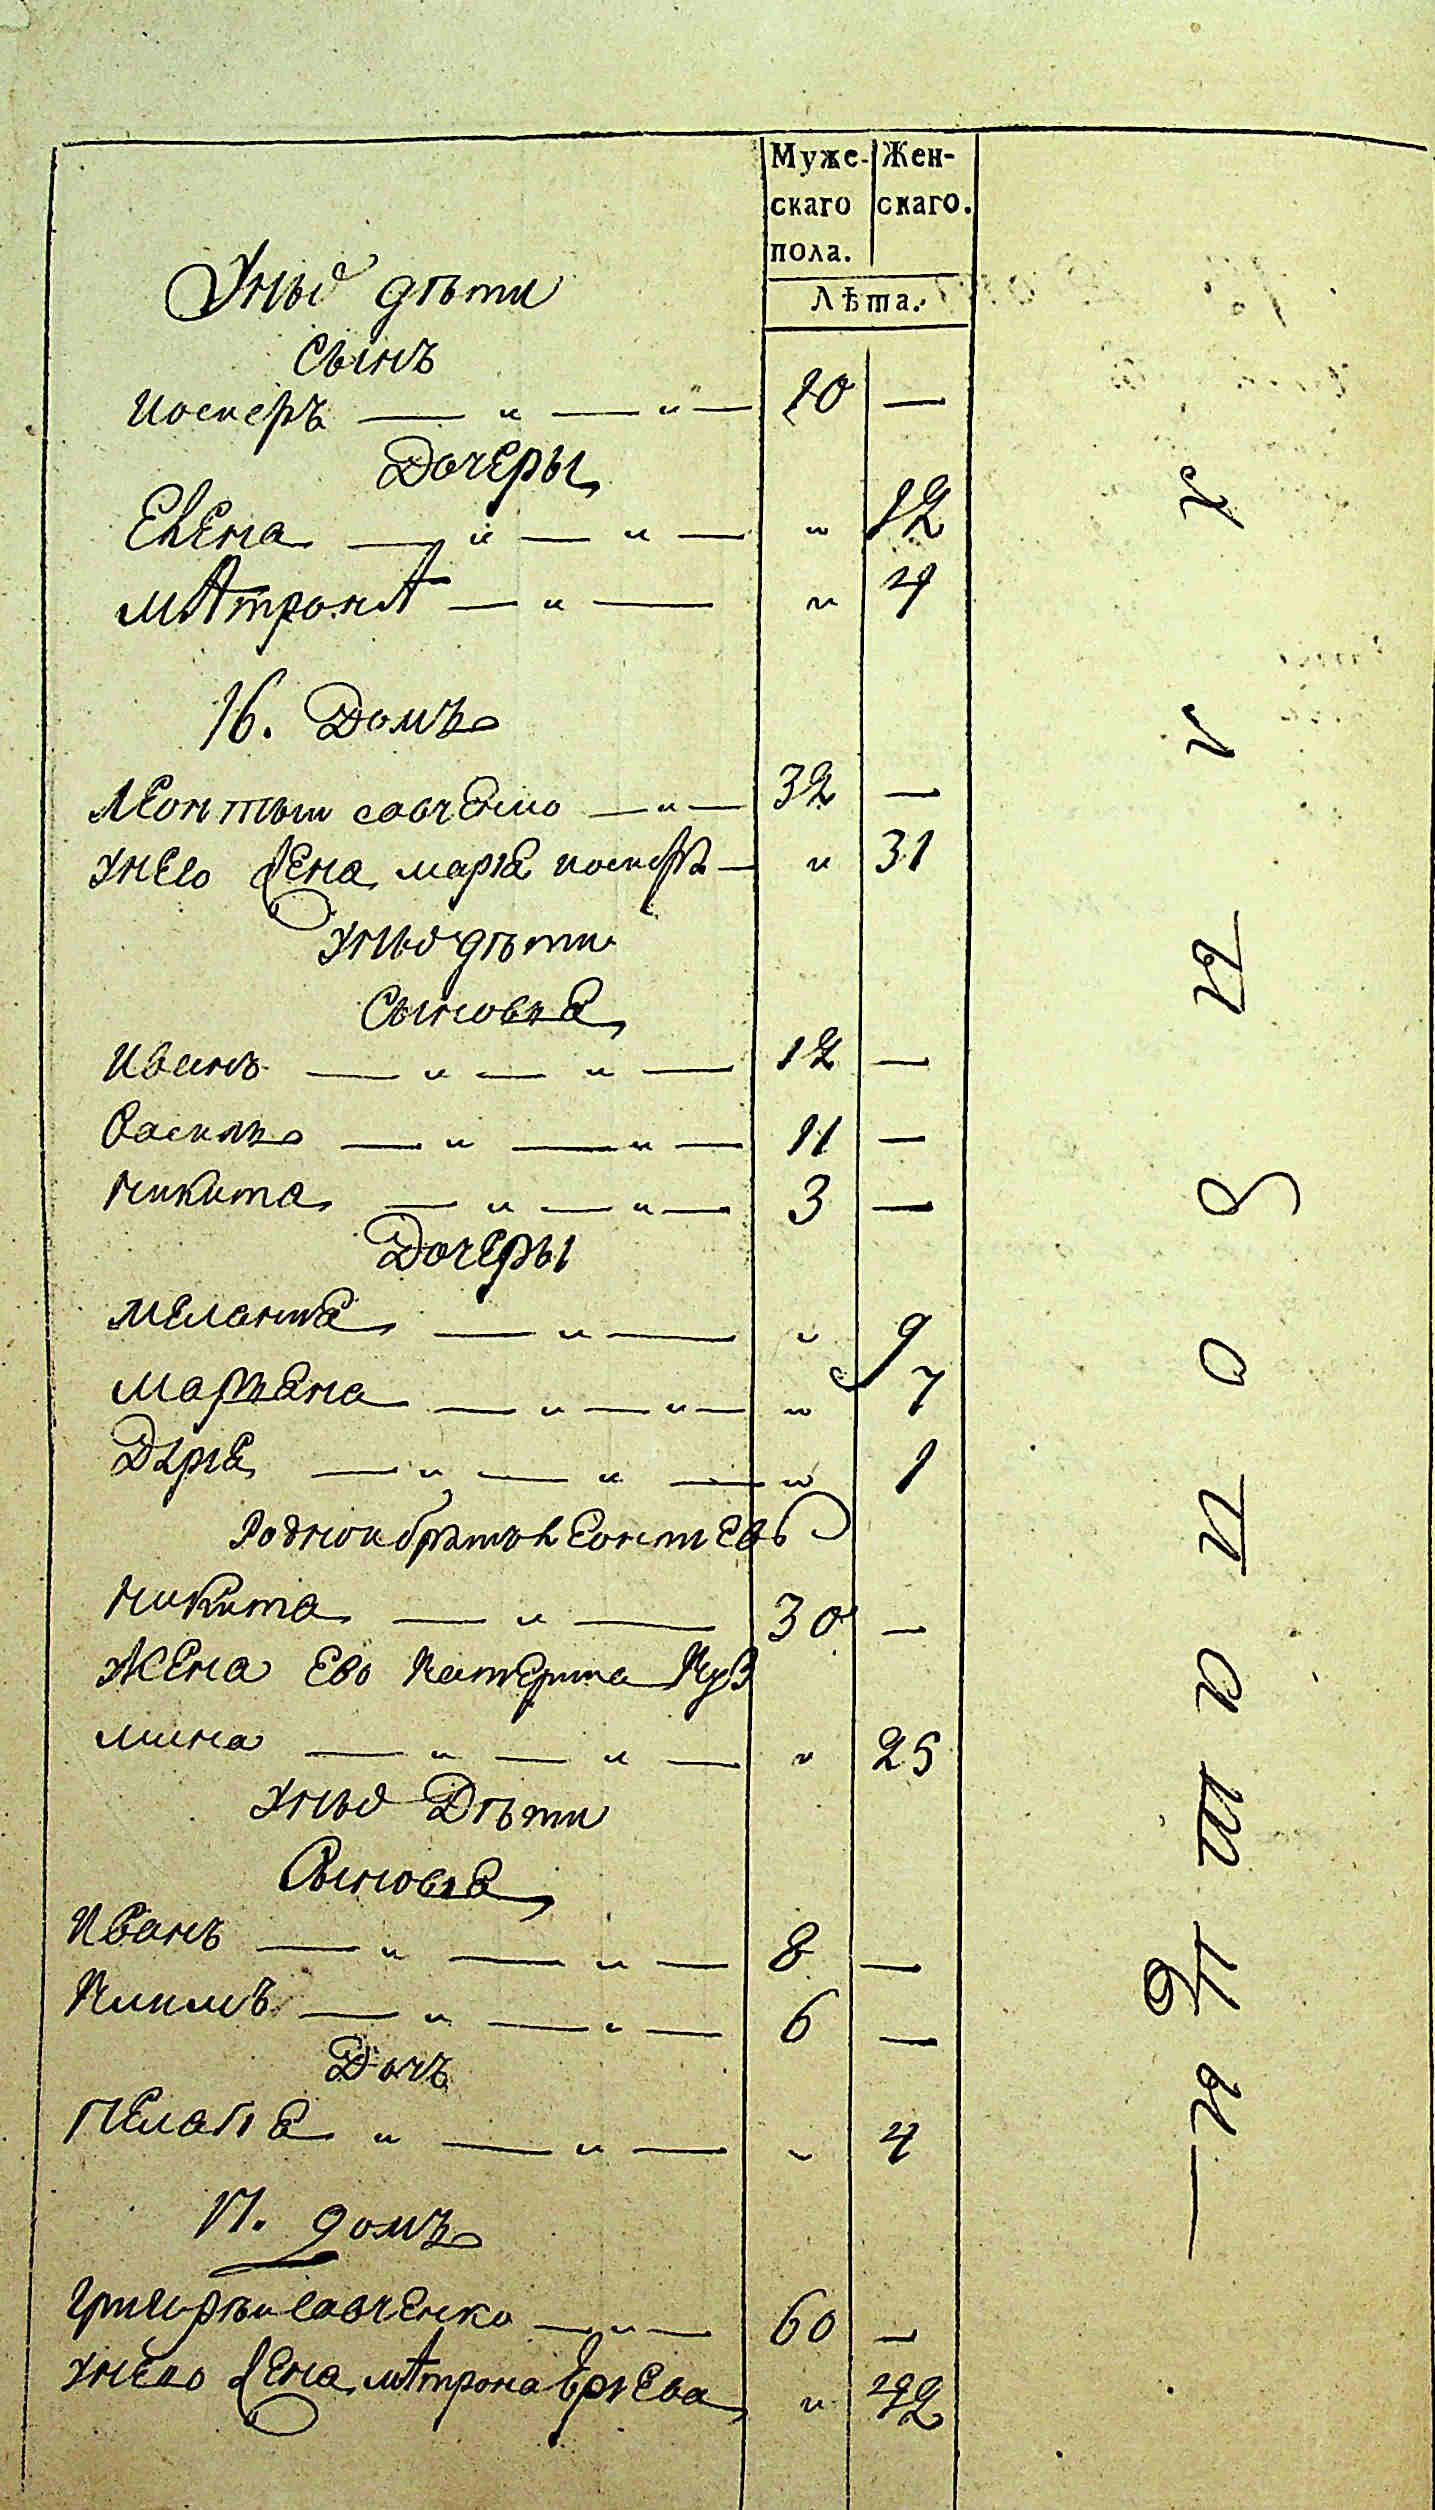 Муже-
скаго
пола.
Жен-
скаго.
Лѣта.
Унихъ дѣти
Сынъ
иосиеръ — „ — „ — 10 —
Дочеры
Елена — „ — „ — „ 12
мАтронА — „ — „ 4
16. Домъ
леонтыи савченко — „ — 32 —
унего жена мариа — „ 31
унихъ дѣти
Сыновиа
иванъ — „ — „ — 12 —
василь — „ — „ — 11 —
никита — „ — „ — 3 —
Дочеры
меланиа — „ — „ 9
маръяна — „ — „ — „ 7
Дариа — „ — „ — „ 1
Родной братъ леонтиевъ
никита — „ — 30 —
жена его катерина Куз
мина — „ — „ — „ 25
унихъ Дѣти
Сыновиа
иванъ — „ — „ — 8 —
климъ — „ — „ — 6 —
Дочъ
пелагиа „ — „ — „ 4
17. домъ
григорыи савченко — „ — 60 —
унего жена мАтрона „ 42